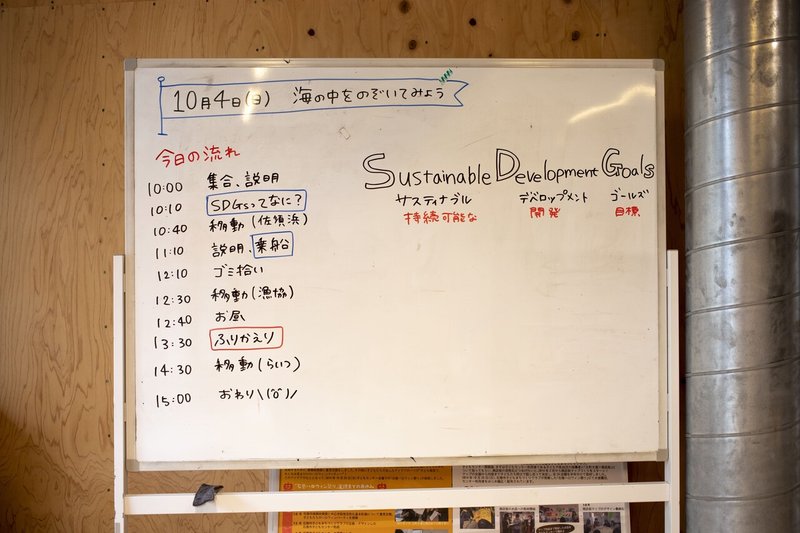 10月4日(日) 海の中をのぞいてみよう
今日の流れ
10:00 集合、説明
10:10 SDGsってなに?
10:40 移動(佐須浜)
11:10 説明、乗船
12:10 ゴミ拾い
12:30 移動(漁協)
12:40 お昼
13:30 ふりかえり
14:30 移動(らいつ)
15:00 おわり
Sustainable Development Goals
サスティナブル デベロップメント ゴールズ
持続可能な 開発 目標